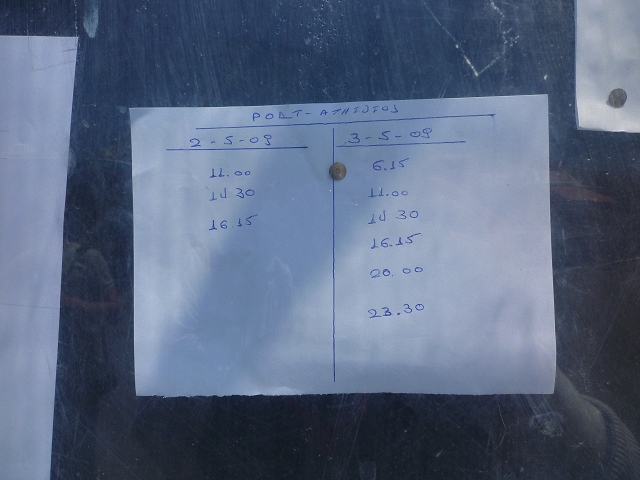 PORT-ATHINIOS
2-5-09 3-5-09
11.00 6.15
14 30 11.00
16.15 14 30
16.15
20.00
23.30